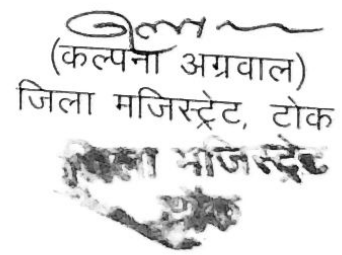 (कल्पना अग्रवाल)
जिला मजिस्ट्रेट, टोक
जिला मजिस्ट्रेट